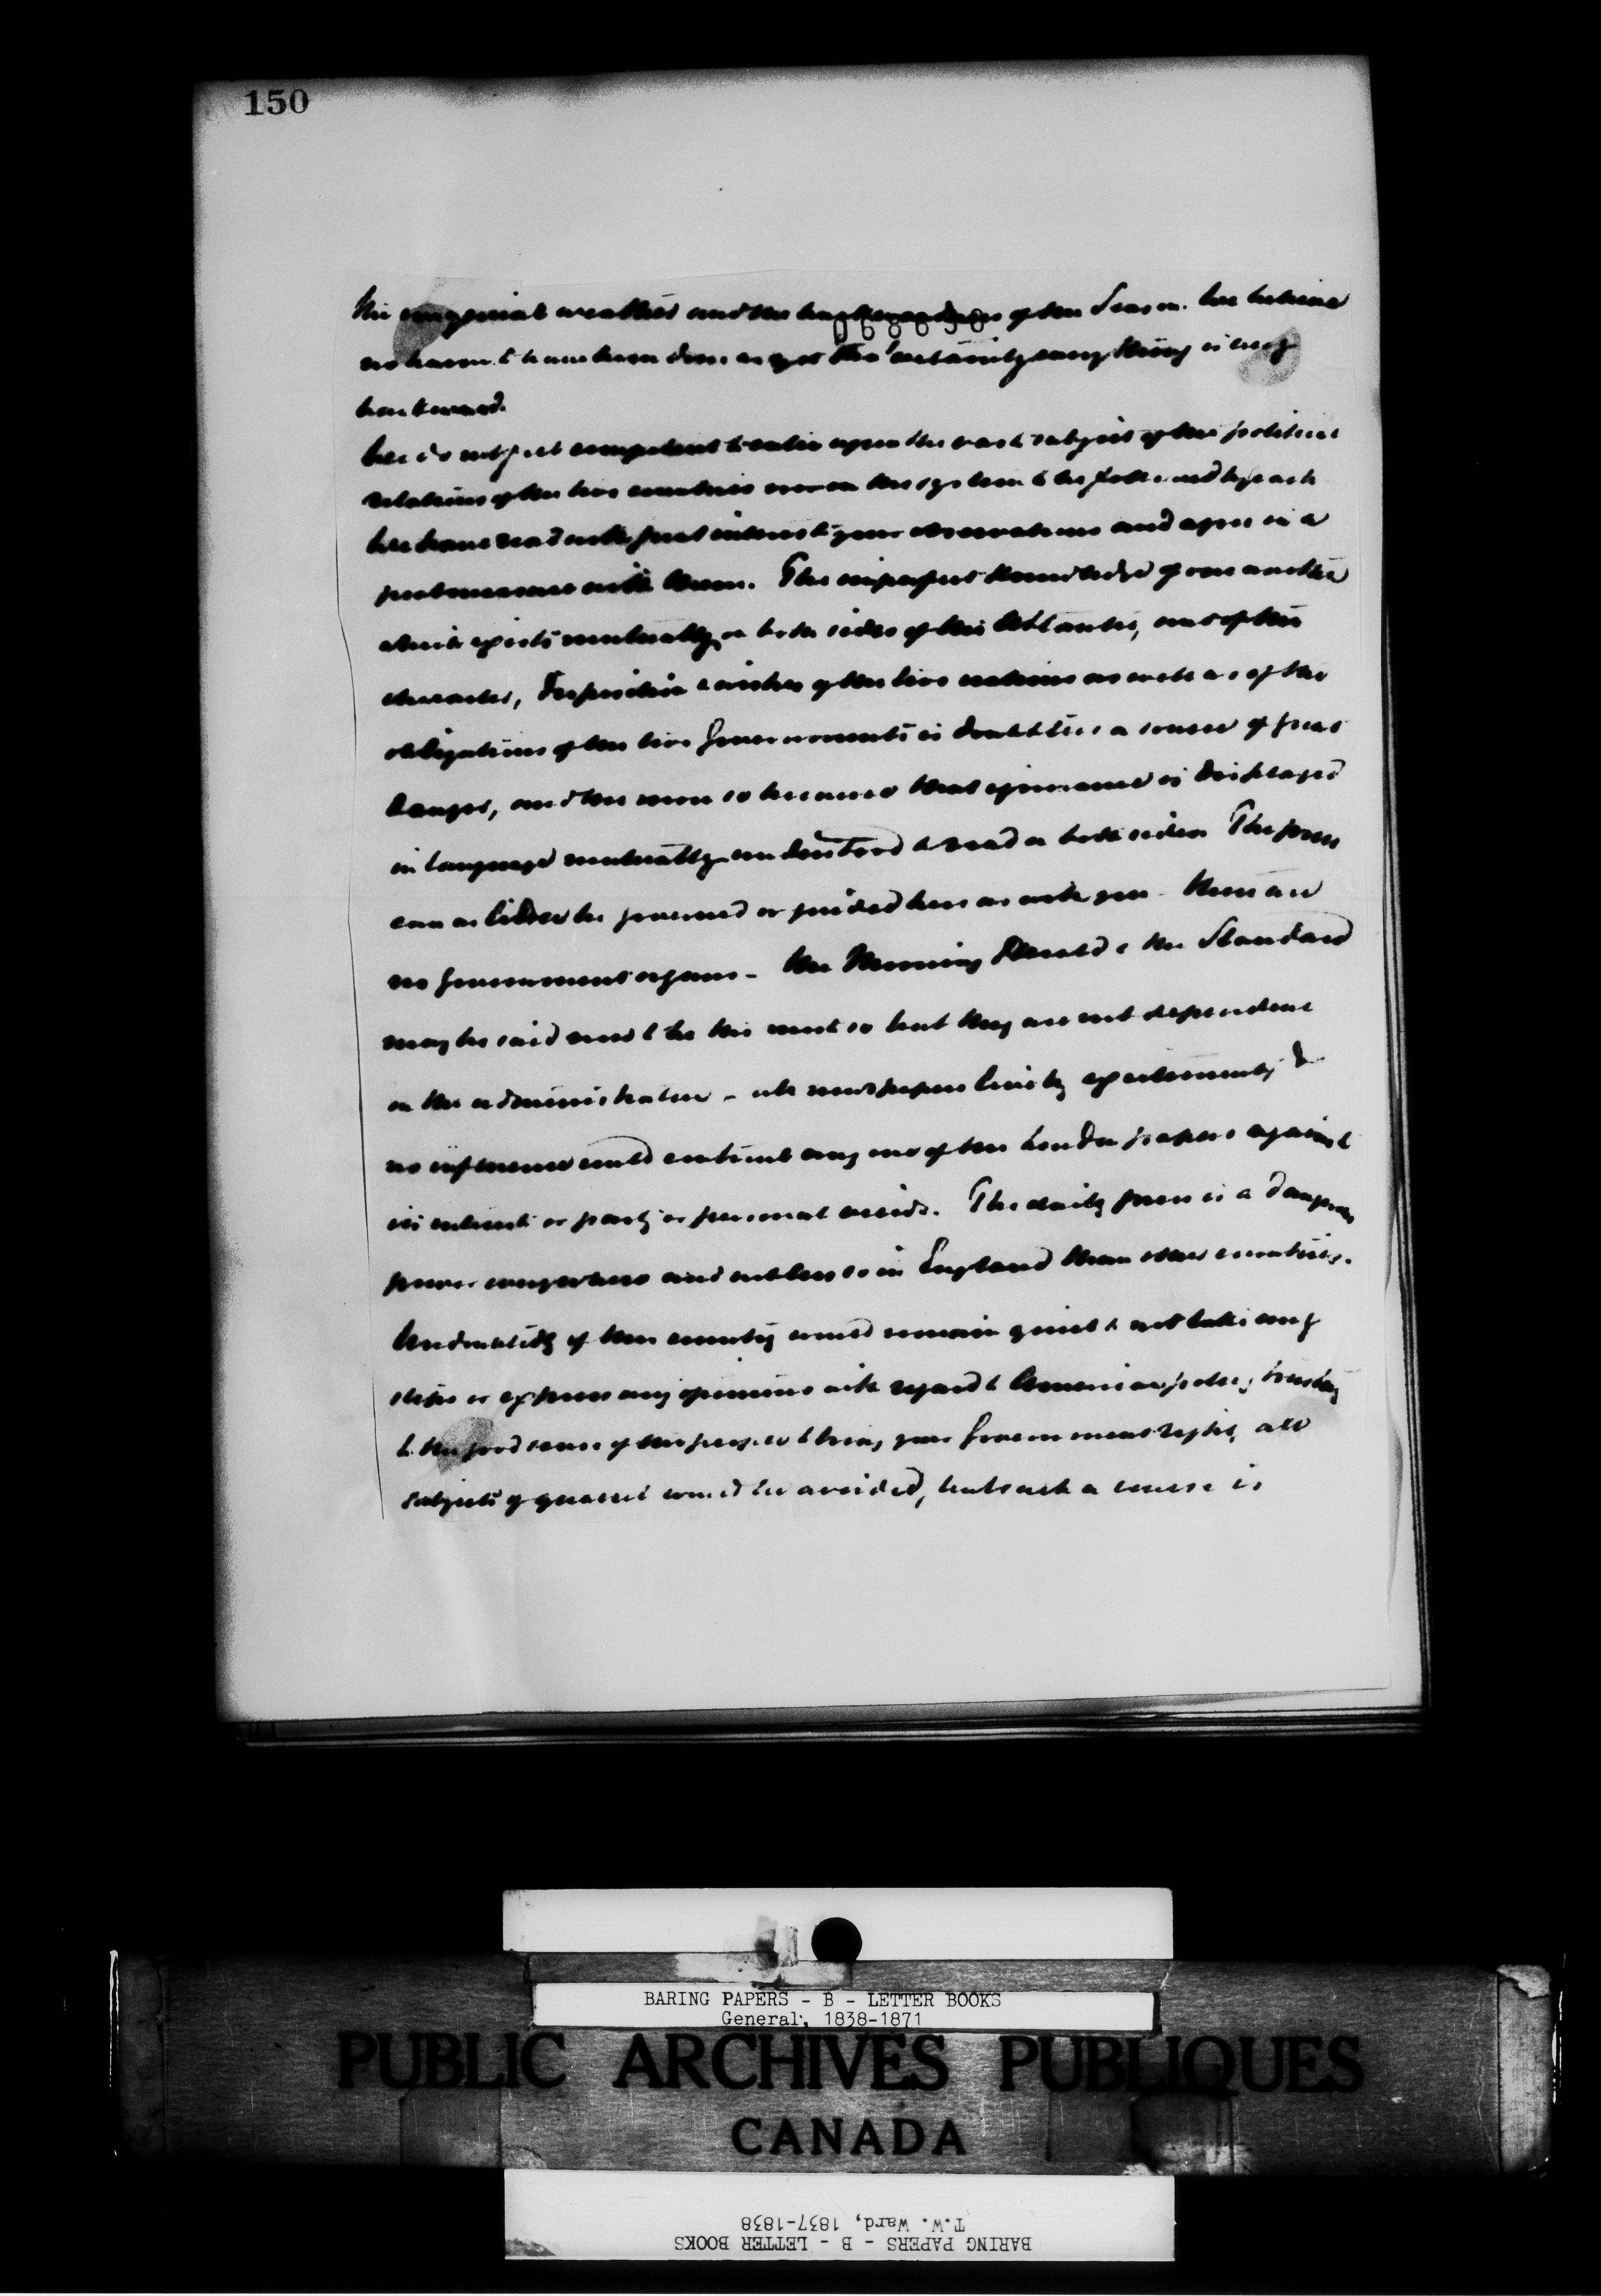 150
the ungenial weather and the backwardness of the Season. We believe
069050
no harm to have been done as yet tho' certainly every thing is very
backward.
We do not feel competent to enter upon the vast subject of the political
relations of the two countries nor on the system to be followed by each
We have read with great interest your observations and agree in a
great measure with them. The imperfect knowledge of one another
which exists mutually on both sides of the Atlantic, one of the
character, disposition & wishes of the two nations as well as of the
obligations of the two Governments is doubtless a source of great
danger, and the more so because that ignorance is displayed
in language mutually understood & read on both sides The press
can as little be governed or guided here as with you - there are
no government organs - the Morning Herald & the Standard
may be said most to be the most so but they are not dependent
on the administration - all newspapers live by excitement, &
no influence could enlist any one of the London papers against
its interest or party or personal views. The daily press is a dangerous
power everywhere and not less so in England than other countries.
Undoubtedly if this country would remain quiet & not take any
steps or express any opinions with regard to American policy trusting
to the good sense of the people to bring your Government right, all
subjects of quarrel would be avoided, but such a course is
BARING PAPERS - B - LETTER BOOKS
General, 1838-1871
PUBLIC ARCHIVES PUBLIQUES
CANADA
T.W. Ward, 1837-1838
BARING PAPERS - B - LETTER BOOKS